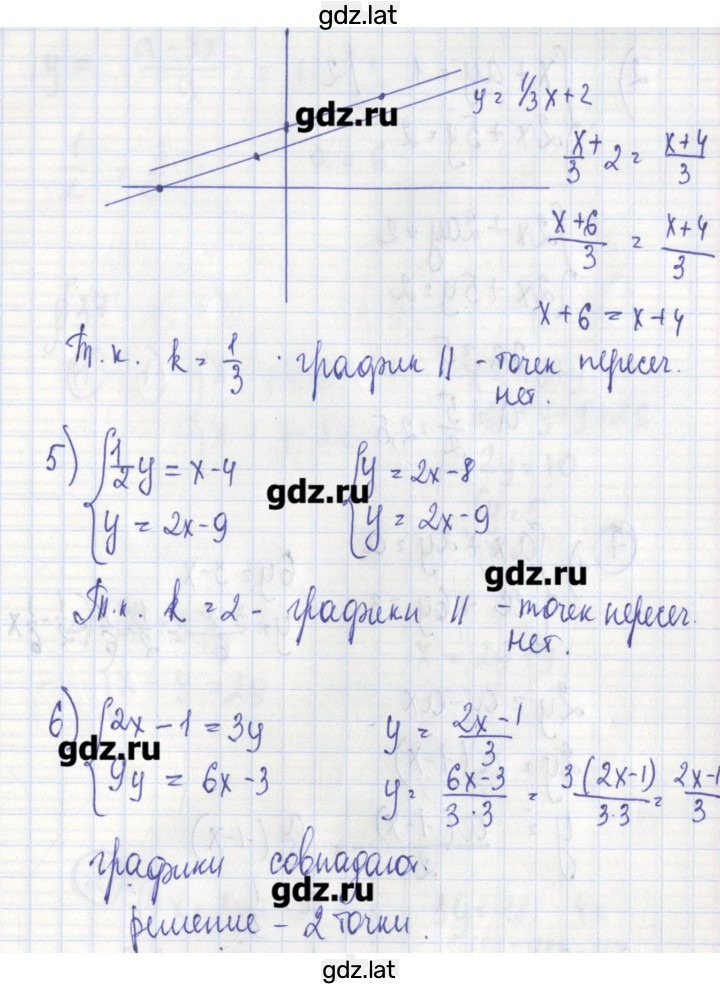 gdz.lat
gdz.ru
y = 1/3 x + 2
x/3 + 2 = (x+4)/3
(x+6)/3 = (x+4)/3
x + 6 = x + 4
Т.к. k = 1/3 · график || - точек пересеч.
нет.
5) { 1/2 y = x - 4    { y = 2x - 8
gdz.ru
y = 2x - 9    y = 2x - 9
gdz.ru
Т.к. k = 2 - графики || - точек пересеч.
нет.
6) { 2x - 1 = 3y    y = (2x-1)/3
gdz.ru
9y = 6x - 3    y = (6x-3)/(3·3) = 3(2x-1)/(3·3) = (2x-1)/3
графики совпадают.
gdz.ru
решение - 2 точки.
gdz.lat